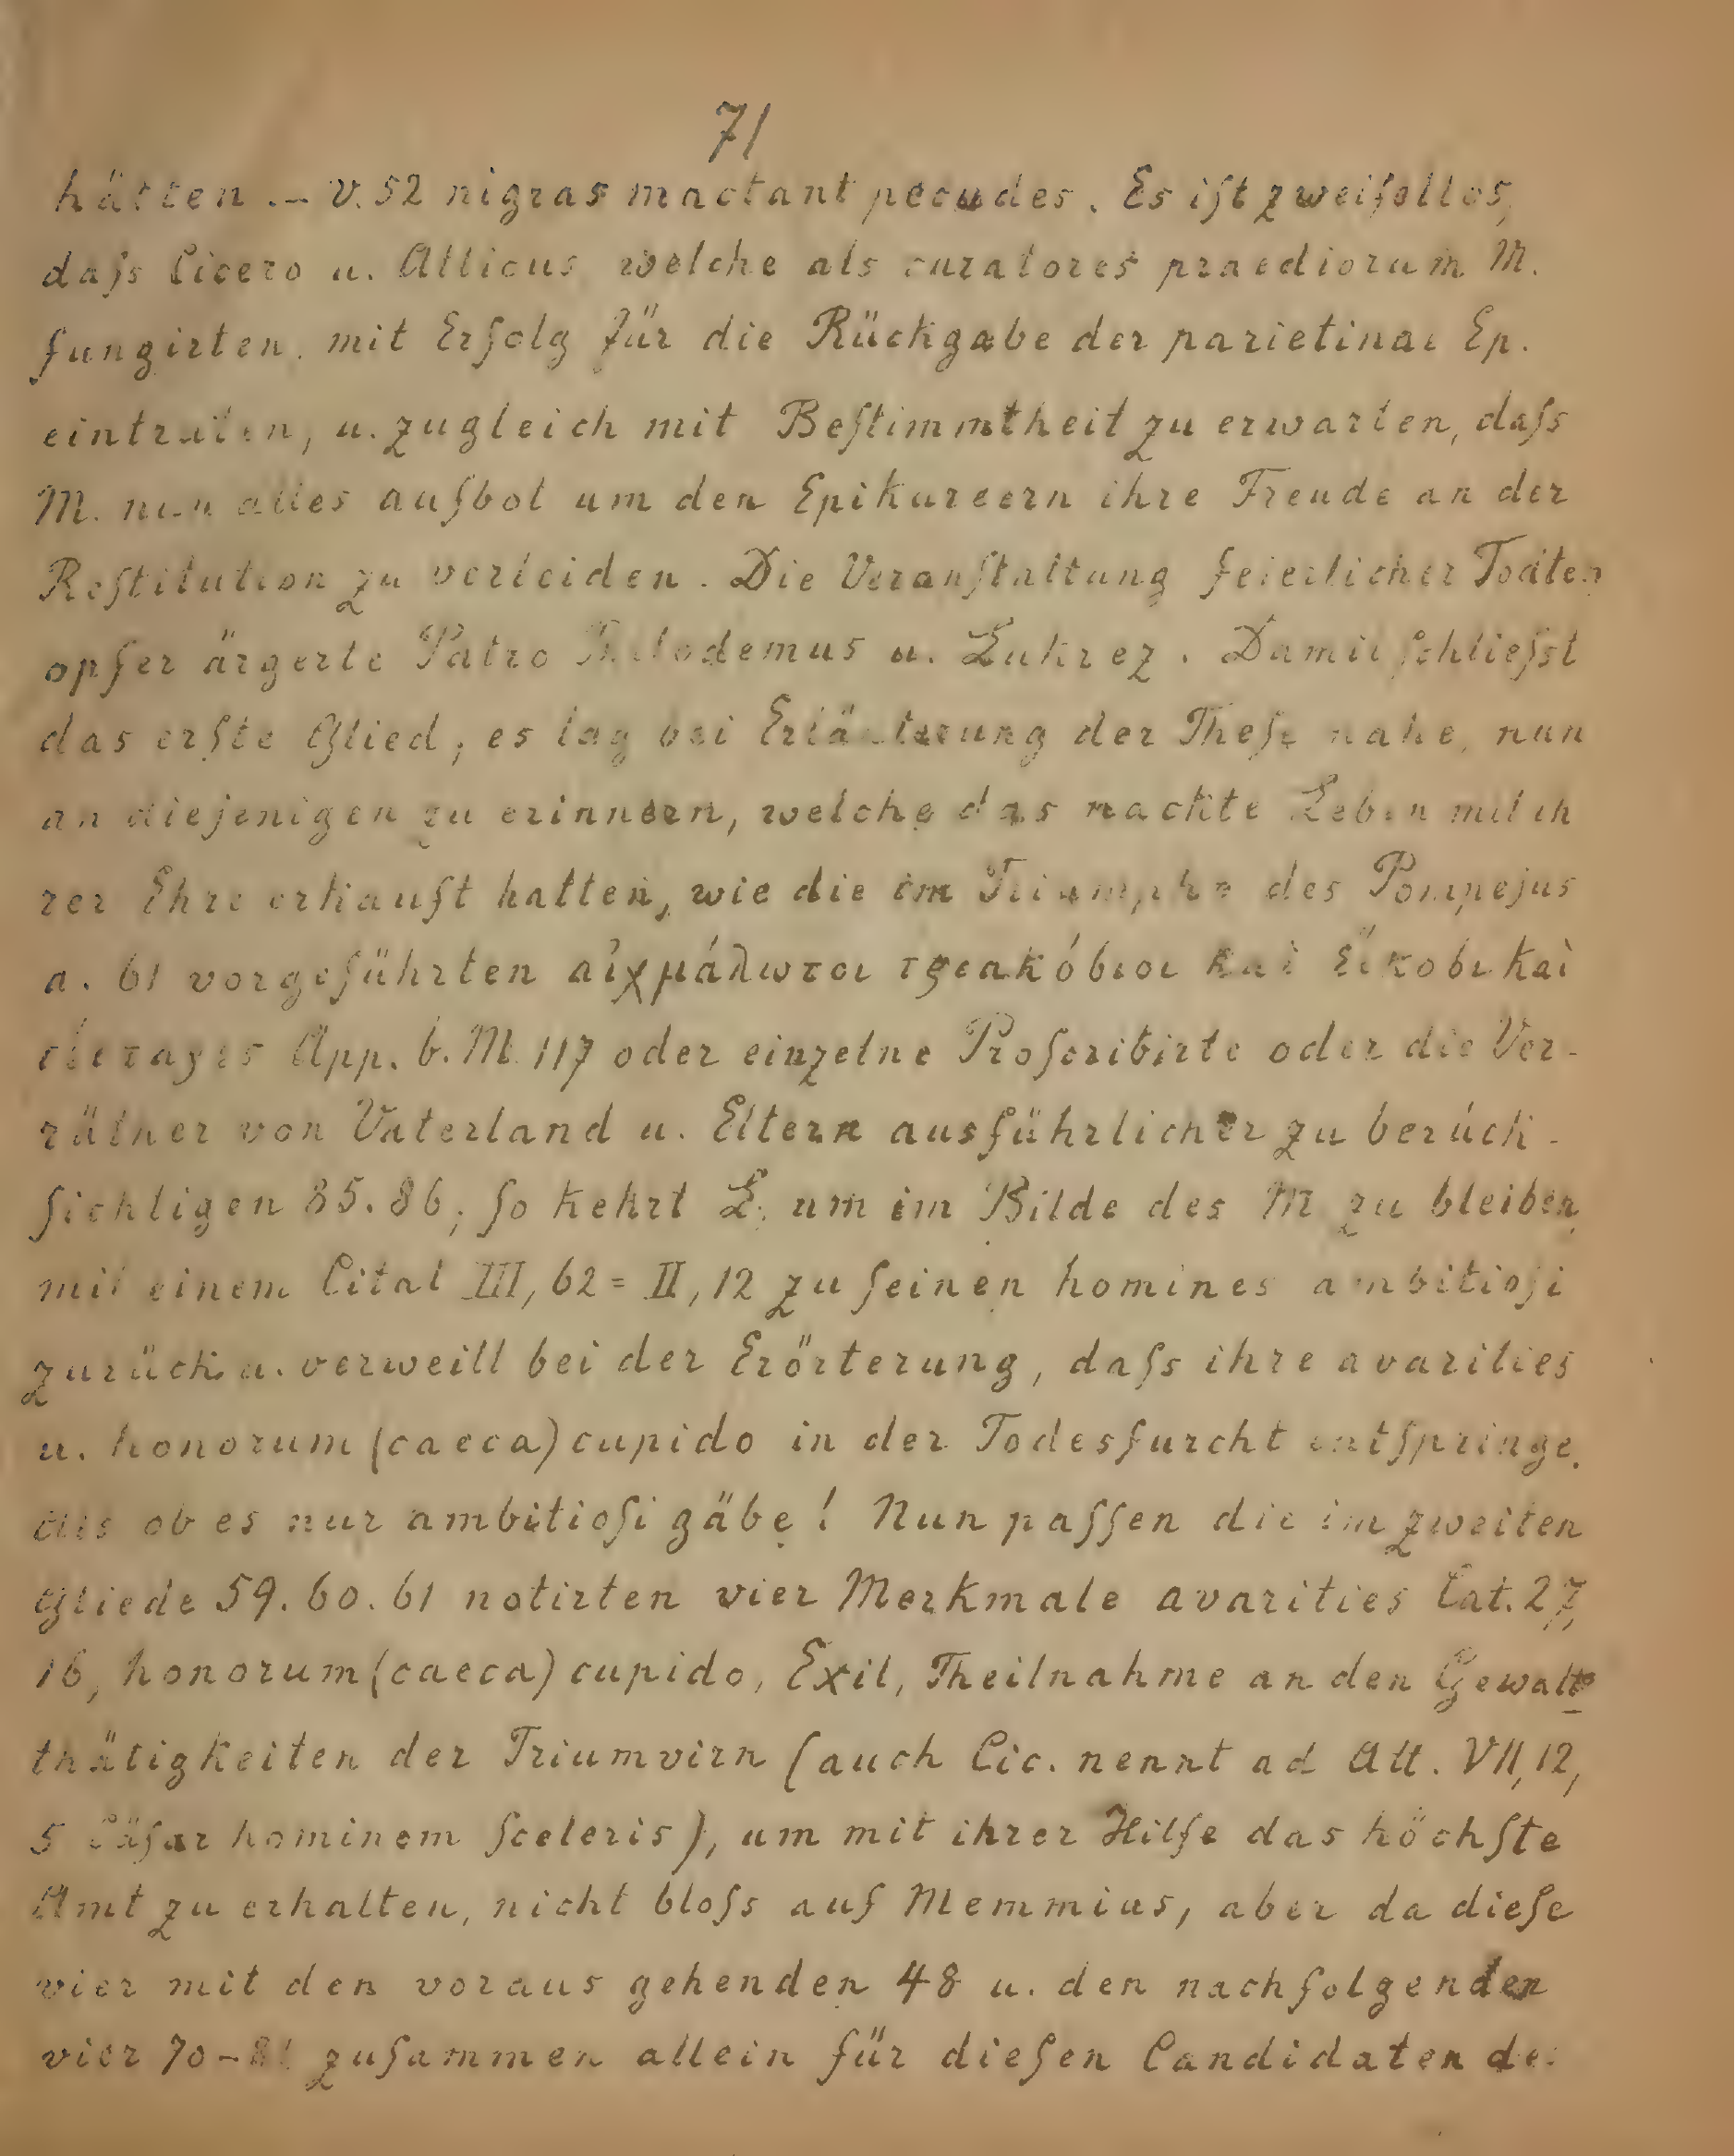 71
hätten. – v. 52 nigras mactant pecudes. Es iſt zweifellos,
daſs Cicero u. Atticus welche als curatores praediorum M.
fungirten, mit Erfolg für die Rückgabe der parietinae Ep.
eintraten, u. zugleich mit Beſtimmtheit zu erwarten, daſs
M. nun alles aufbot um den Epikureern ihre Freude an der
Reſtitution zu verleiden. Die Veranſtaltung feierlicher Todten
opfer ärgerte Patro Philodemus u. Lukrez. Damit ſchlieſst
das erſte Glied, es lag bei Erläuterung der Theſe nahe, nun
an diejenigen zu erinnern, welche das nackte Leben mit ih
rer Ehre erkauft hatten, wie die im Triumphe des Pompejus
a. 61 vorgeführten αἰχμάλωτοι τριακόσιοι καὶ εἴκοσι καὶ
App. b. M. 117 oder einzelne Proſcribirte oder die Ver-
räther von Vaterland u. Eltern ausführlicher zu berück-
ſichtigen 85. 86, ſo kehrt L. um im Bilde des M zu bleiben
mit einem Citat III, 62 = II, 12 zu ſeinen homines ambitioſi
zurück u. verweilt bei der Erörterung, daſs ihre avarities
u. honorum (caeca) cupido in der Todesfurcht entſpringe.
als ob es nur ambitioſi gäbe! Nun paſſen die im zweiten
Gliede 59. 60. 61 notirten vier Merkmale avarities Cat. 27,
16, honorum (caeca) cupido, Exil, Theilnahme an den Gewalt
thätigkeiten der Triumvirn (auch Cic. nennt ad Att. VII, 12,
5 Cäſar hominem ſceleris), um mit ihrer Hilfe das höchſte
Amt zu erhalten, nicht bloſs auf Memmius, aber da dieſe
vier mit den voraus gehenden 48 u. den nachfolgenden
vier 70–81 zuſammen allein für dieſen Candidaten